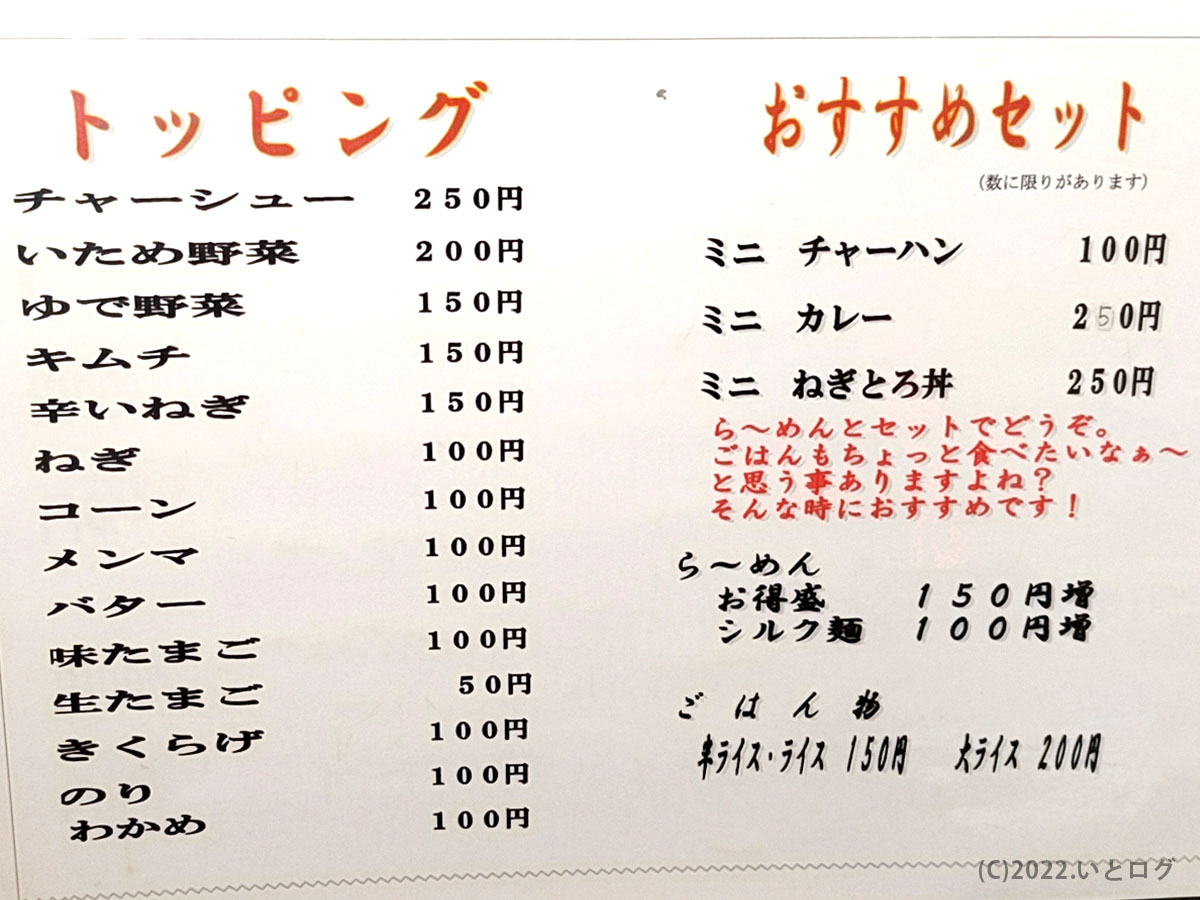 トッピング
チャーシュー 250円
いため野菜 200円
ゆで野菜 150円
キムチ 150円
辛いねぎ 150円
ねぎ 100円
コーン 100円
メンマ 100円
バター 100円
味たまご 100円
生たまご 50円
きくらげ 100円
のり 100円
わかめ 100円
おすすめセット
(数に限りがあります)
ミニ チャーハン 100円
ミニ カレー 250円
ミニ ねぎとろ丼 250円
ら～めんとセットでどうぞ。
ごはんもちょっと食べたいなぁ～
と思う事ありますよね?
そんな時におすすめです!
ら～めん
お得盛 150円増
シルク麺 100円増
ごはん物
半ライス・ライス 150円 大ライス 200円
(C)2022.いとログ